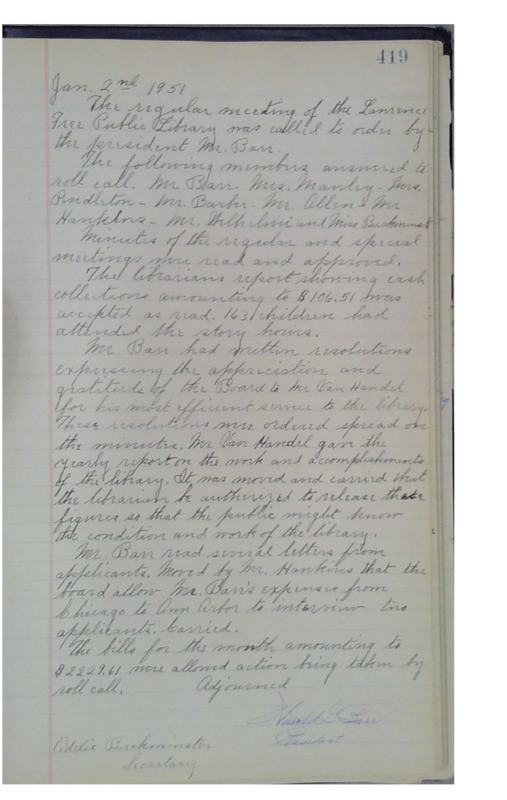 419
Jan. 2nd 1951
The regular meeting of the Lawrence
Free Public Library was called to order by
the president Mr. Barr.
The following members answered to
roll call. Mr Barr - Mrs. Manley - Mrs.
Pendleton - Mr. Barber - Mr. Allen & Mr
Hankins - Mr. Wilhelmi and Miss Buckminster
Minutes of the regular and special
meetings were read and approved.
The librarians report showing cash
collections amounting to $106.51 was
accepted as read. 1631 children had
attended the story hours.
Mr. Barr had written resolutions
expressing the appreciation and
gratitude of the Board to Mr Van Handel
for his most efficient service to the library.
These resolutions were ordered spread on
the minutes. Mr Van Handel gave the
yearly report on the work and accomplishments
of the library. It was moved and carried that
the librarian be authorized to release these
figures so that the public might know
the condition and work of the library.
Mr. Barr read several letters from
applicants. Moved by Mr. Hankins that the
board allow Mr. Barr's expenses from
Chicago to Ann Arbor to interview two
applicants. Carried.
The bills for the month amounting to
$2229.61 were allowed action being taken by
roll call. Adjourned
Harold G. Barr
President
Addie Buckminster
Secretary